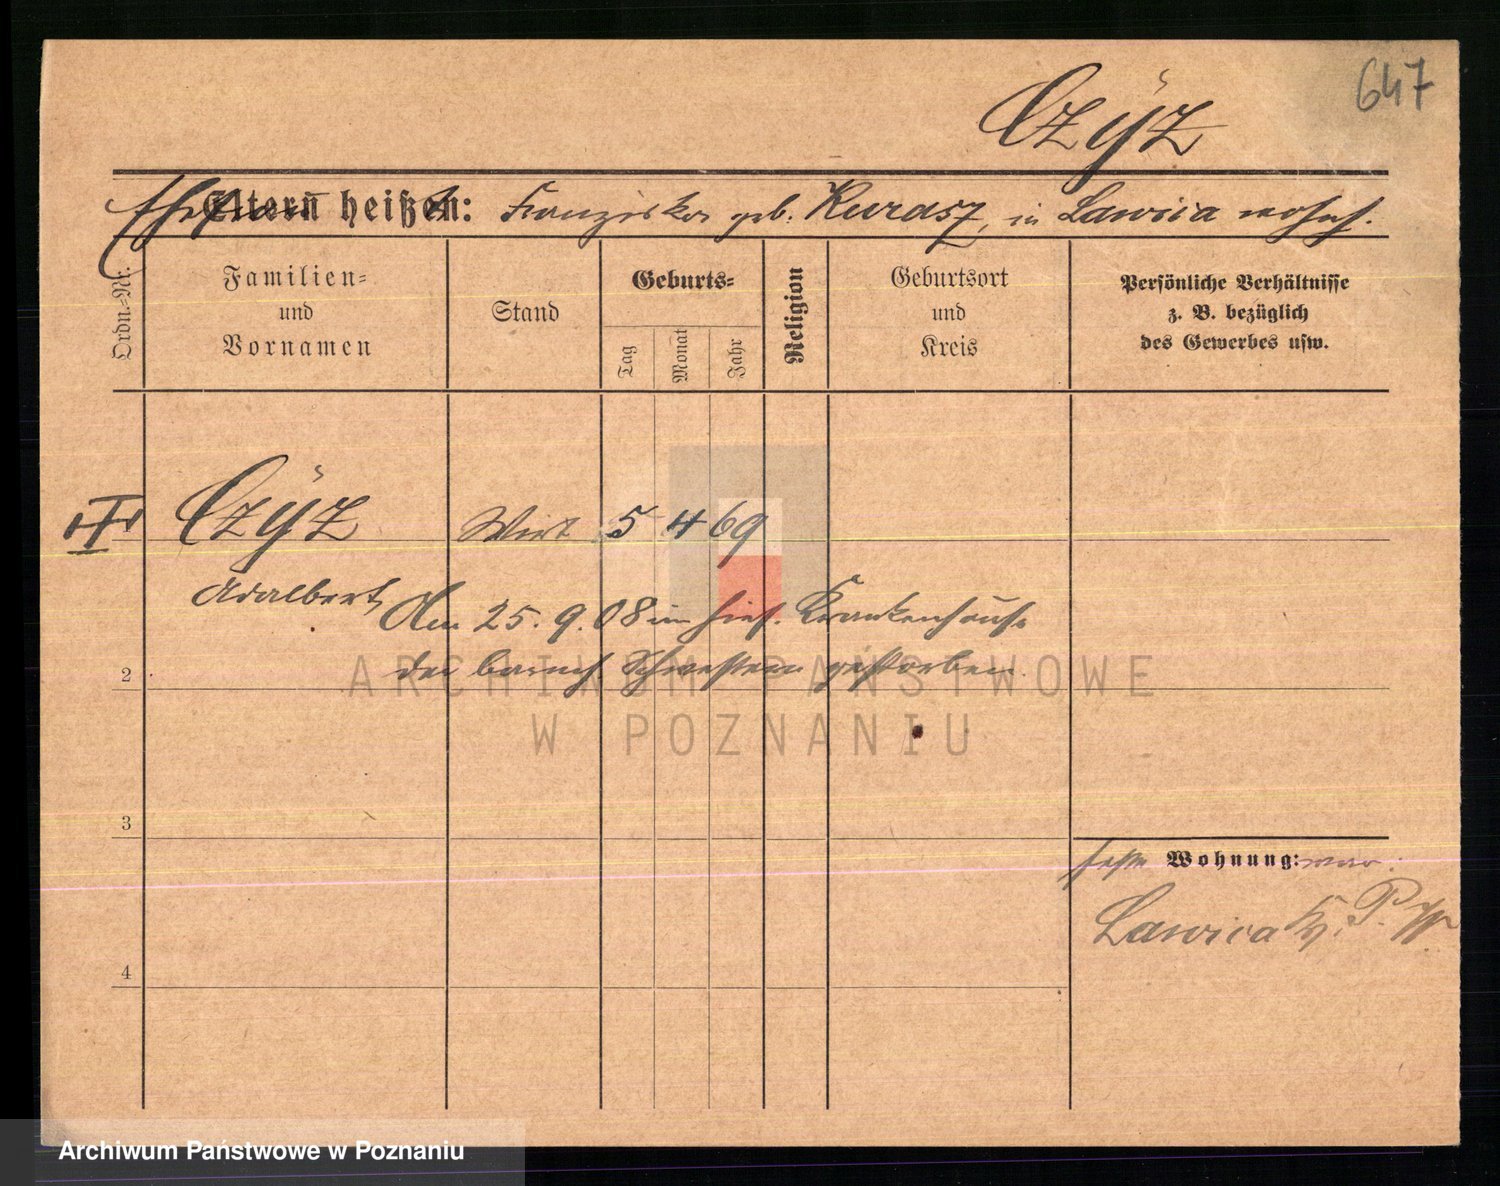 647
Czÿz
Ehefrau heißt: Franziska geb. Kurasz, in Lawica wohnh.
Ordn.-Nr.
Familien- und Vornamen
Stand
Geburts-
Tag
Monat
Jahr
Religion
Geburtsort und Kreis
Persönliche Verhältnisse z. B. bezüglich des Gewerbes usw.
Czÿz Wirt 5 4 69
Adalbert
Am 25. 9. 08 im hies. Krankenhause
der barmh. Schwestern gestorben.
2
3
4
Wohnung: war:
Lawica Kr. P.
ARCHIWUM PAŃSTWOWE
W POZNANIU
Archiwum Państwowe w Poznaniu